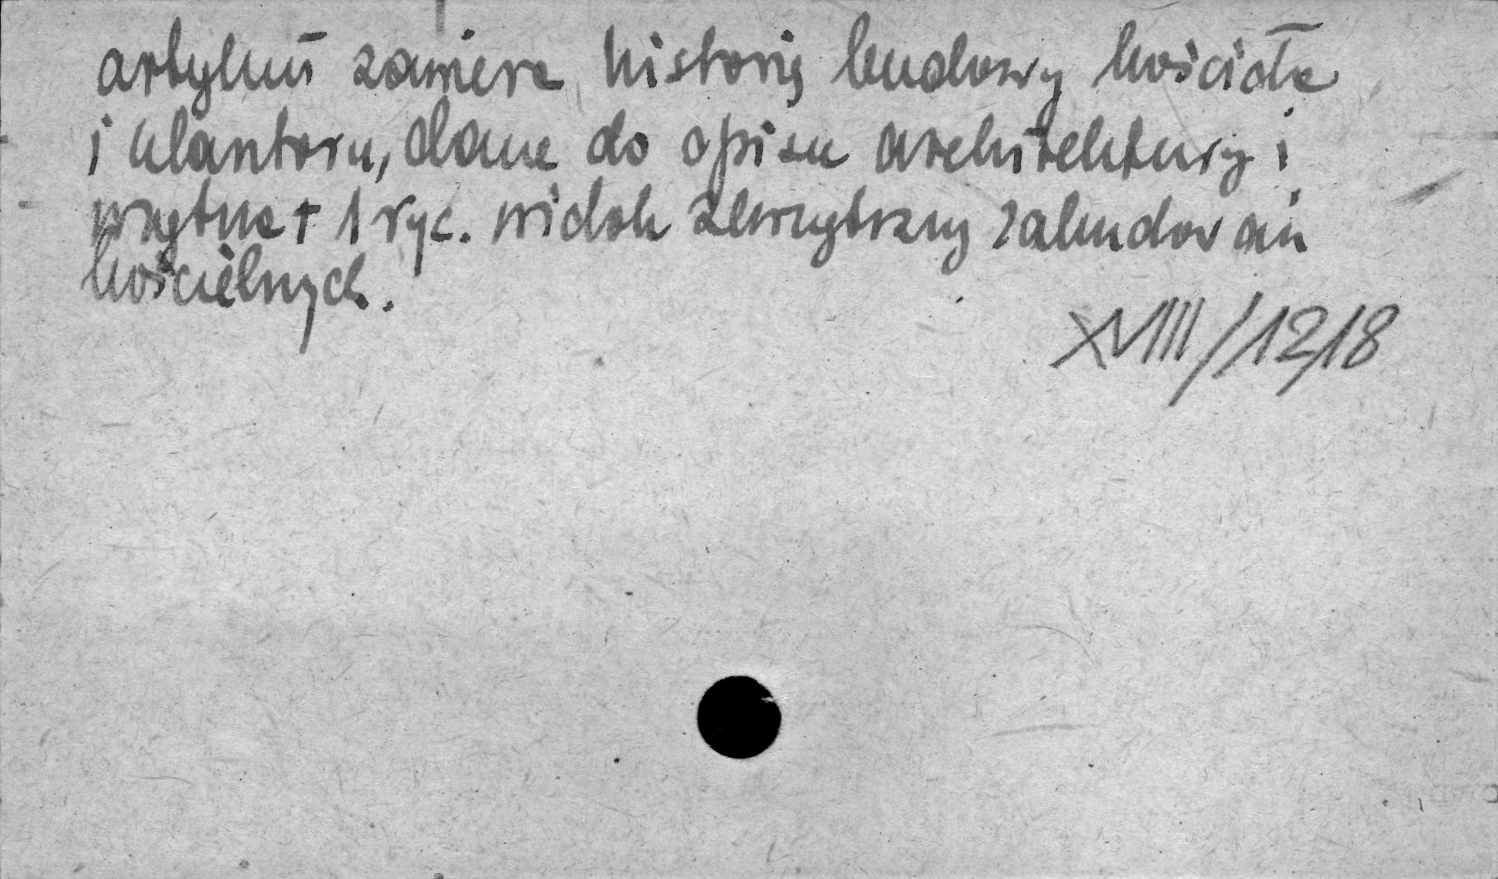 artykuł zawiera historię budowy kościoła
i klasztoru, dane do opisu architektury i
wnętrze + 1 ryc. widok zewnętrzny zabudowań
kościelnych.
XVIII/1218